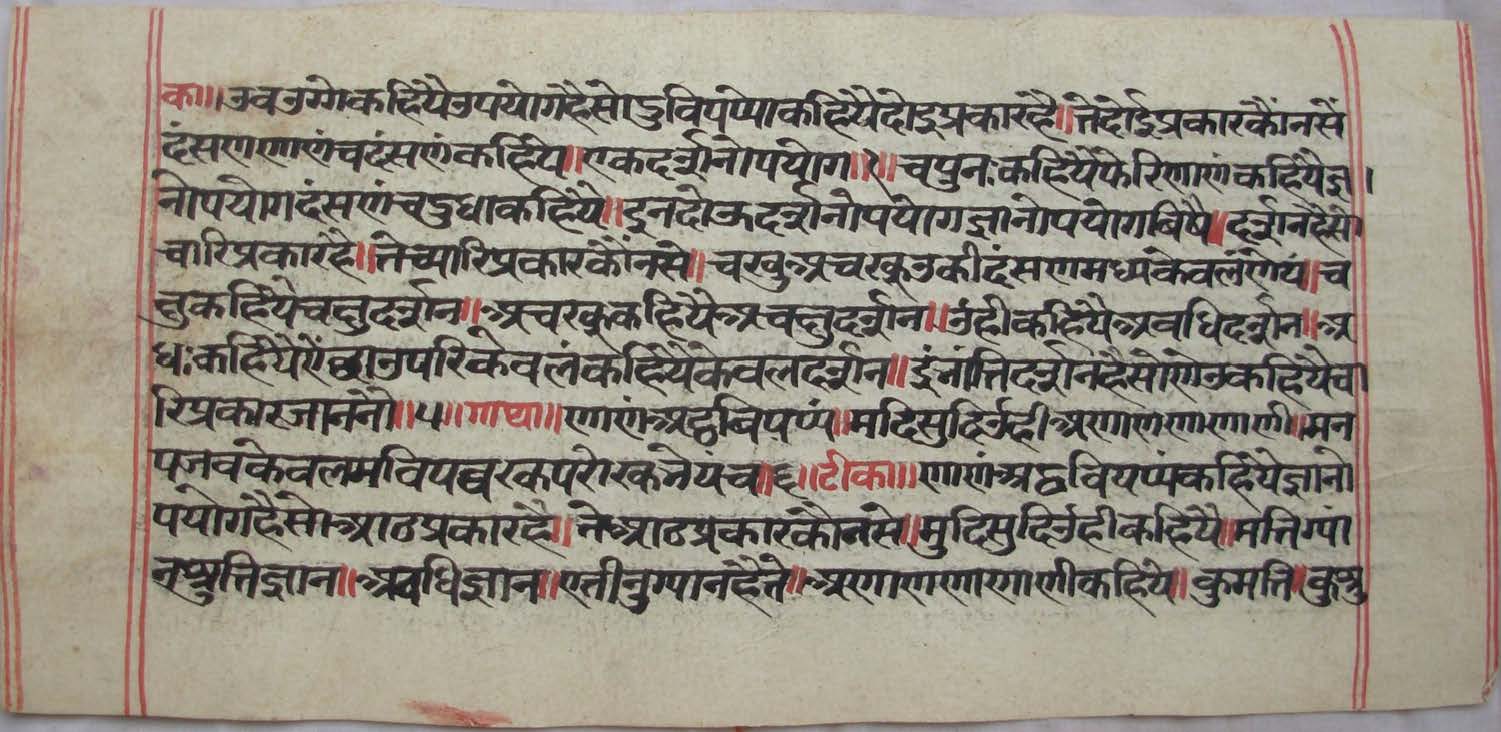 का॥ उवउग्गो कहियै उपयोग है सो दुवियप्पो कहियै दोइ प्रकार है॥ ते दोई प्रकार कौंन सें
दंसण णाणं च दंसणं कहिये॥ एक दर्शनोपयोग॥१॥ च पुनः कहियै फेरि णाणं कहिये ज्ञा
नोपयोग दंसणं चदुधा कहियै॥ इन दोऊ दर्शनोपयोग ज्ञानोपयोग बिषै॥ दर्शन है सो
चारि प्रकार है॥ ते च्यारि प्रकार कौंन से॥ चखु अचरकु उकी दंसणमध्य केवलं णेयं॥ च
क्षु कहियै चक्षुदर्शन॥ अचरकु कहियै अचक्षुदर्शन॥ उंही कहियै अवधिदर्शन॥ अ
धः कहियै ऐंछा उपरि केवलं कहियै केवलदर्शन॥ इंनांत्ति दर्शन है सो णेउ कहियै चा
रि प्रकार जाननौ॥५॥ गाथा॥ णाणं अट्ठबियप्पं॥ मदिसुदिउंही अणाणणाणाणी॥ मन
पजव केवलमवि पच्चरक परोरकनेयं च॥६॥ टीका॥ णाणं अट्ठवियप्पं कहिये ज्ञानो
पयोग है सो आठ प्रकार है॥ ते आठ प्रकार कौन से॥ मुदिसुदिउंही कहियै॥ मत्तिग्या
न श्रुत्तिज्ञान॥ अवधिज्ञान॥ ए तीनु ग्यान है ते॥ अणाणणाणाणी कहिये॥ कुमत्ति॥ कुश्रु